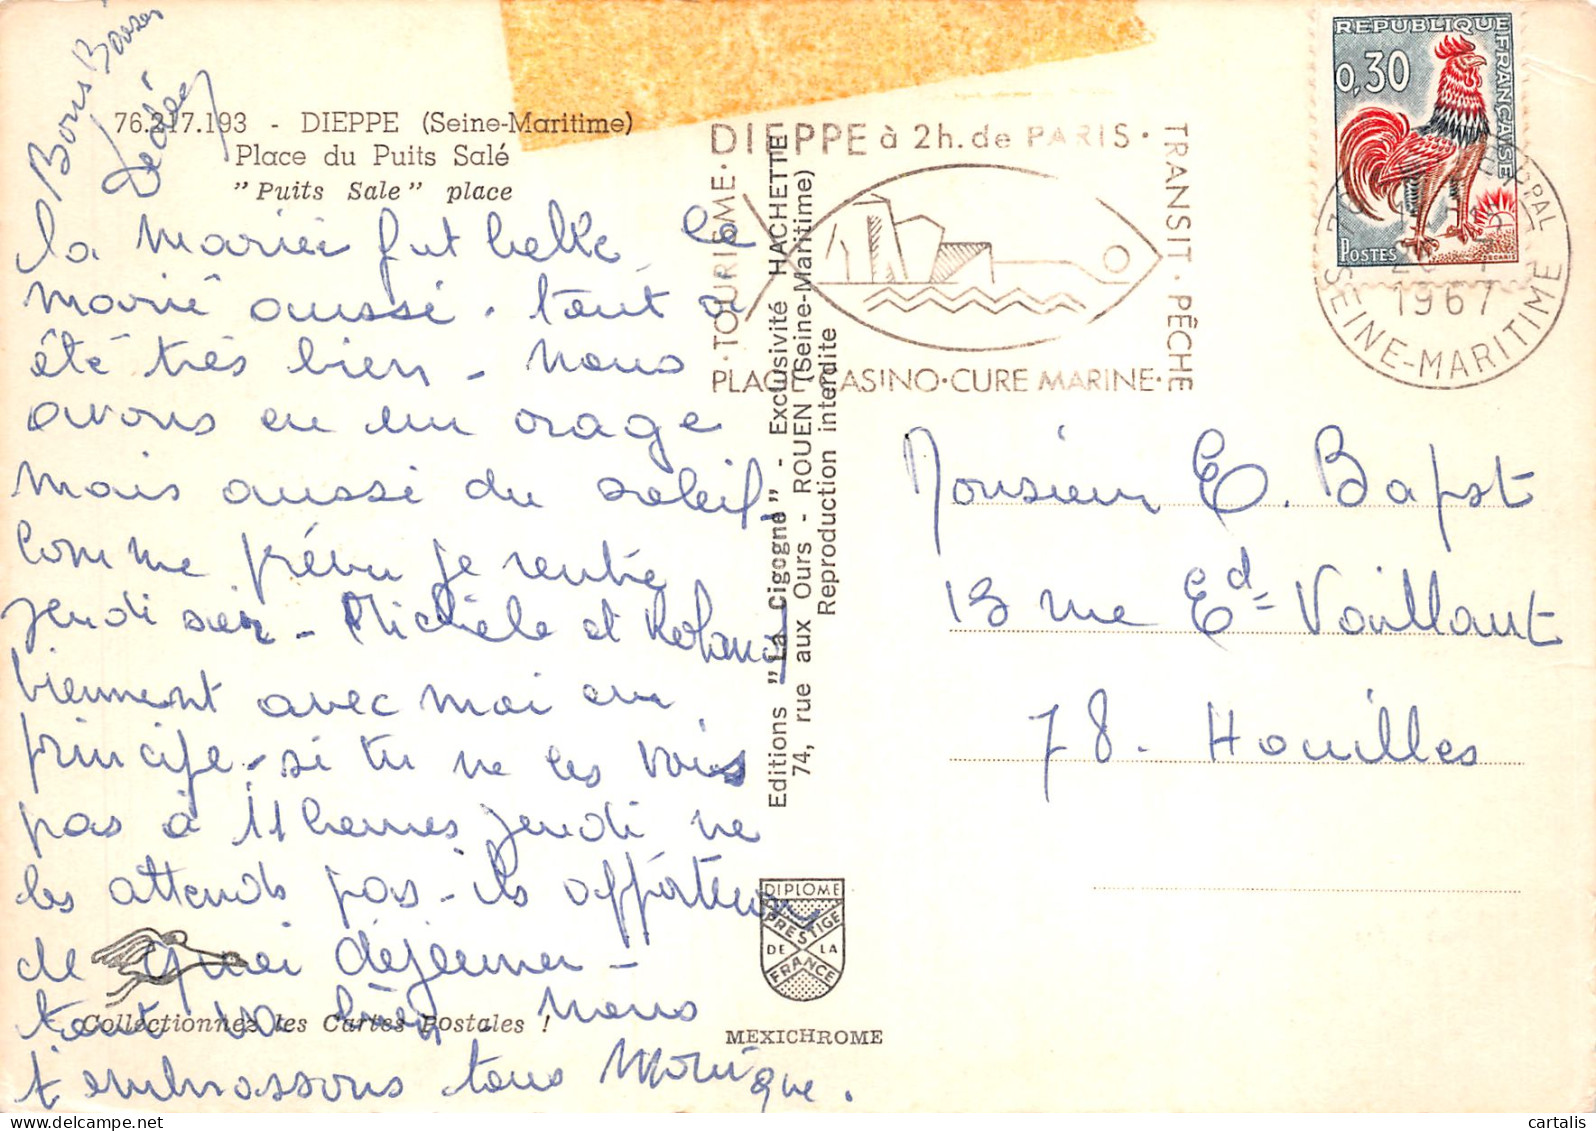 Bons Baisers
76.217.193 - DIEPPE (Seine-Maritime)
Place du Puits Salé
"Puits Sale" place
la mariée fut belle, le
marié aussi. tout a
été très bien - nous
avons eu un orage
mais aussi du soleil.
Comme prévu je rentre
jeudi soir - Michèle et Roland
viennent avec moi en
principe - si tu ne les vois
pas à 11 heures jeudi ne
les attends pas - ils apporteront
de quoi déjeuner -
tout va bien - nous
t'embrassons tous Monique.
Collectionnez les Cartes Postales !
Editions "La Cigogne" - Exclusivité HACHETTE
74, rue aux Ours - ROUEN (Seine-Maritime)
Reproduction interdite
DIPLOME
PRESTIGE
DE LA
FRANCE
MEXICHROME
DIEPPE à 2h. de PARIS ·
TRANSIT · PÊCHE
· TOURISME ·
PLAGE CASINO · CURE MARINE ·
REPUBLIQUE FRANÇAISE
0,30
POSTES
DECARIS
1967
SEINE-MARITIME
Monsieur E. Bapst
13 rue Ed Vaillant
78. Houilles
delcampe.net
cartalis